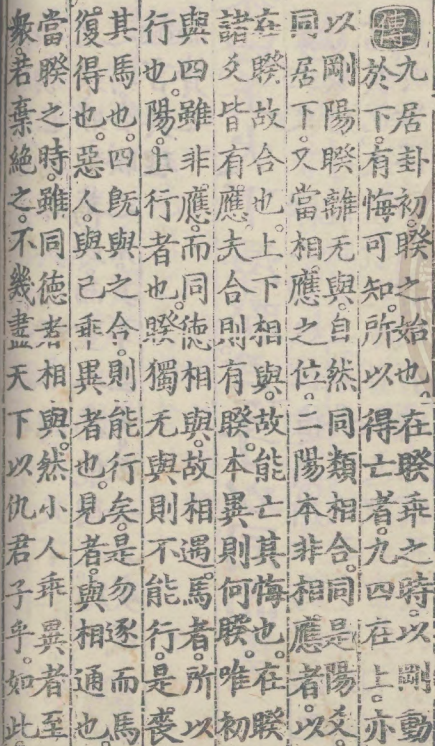 傳
九居卦初。睽之始也。在睽乖之時。以剛動
於下。有悔可知。所以得亡者。九四在上。亦
以剛陽睽離无與。自然同類相合。同是陽爻
同居下。又當相應之位。二陽本非相應者。以
在睽故合也。上下相與。故能亡其悔也。在睽
諸爻皆有應。夫合則有睽。本異則何睽。唯初
與四雖非應。而同德相與。故相遇。馬者。所以
行也。陽。上行者也。睽獨无與則不能行。是喪
其馬也。四既與之合。則能行矣。是勿逐而馬
復得也。惡人。與己乖異者也。見者。與相通也。
當睽之時。雖同德者相與。然小人乖異者至
衆。若棄絶之。不幾盡天下以仇君子乎。如此